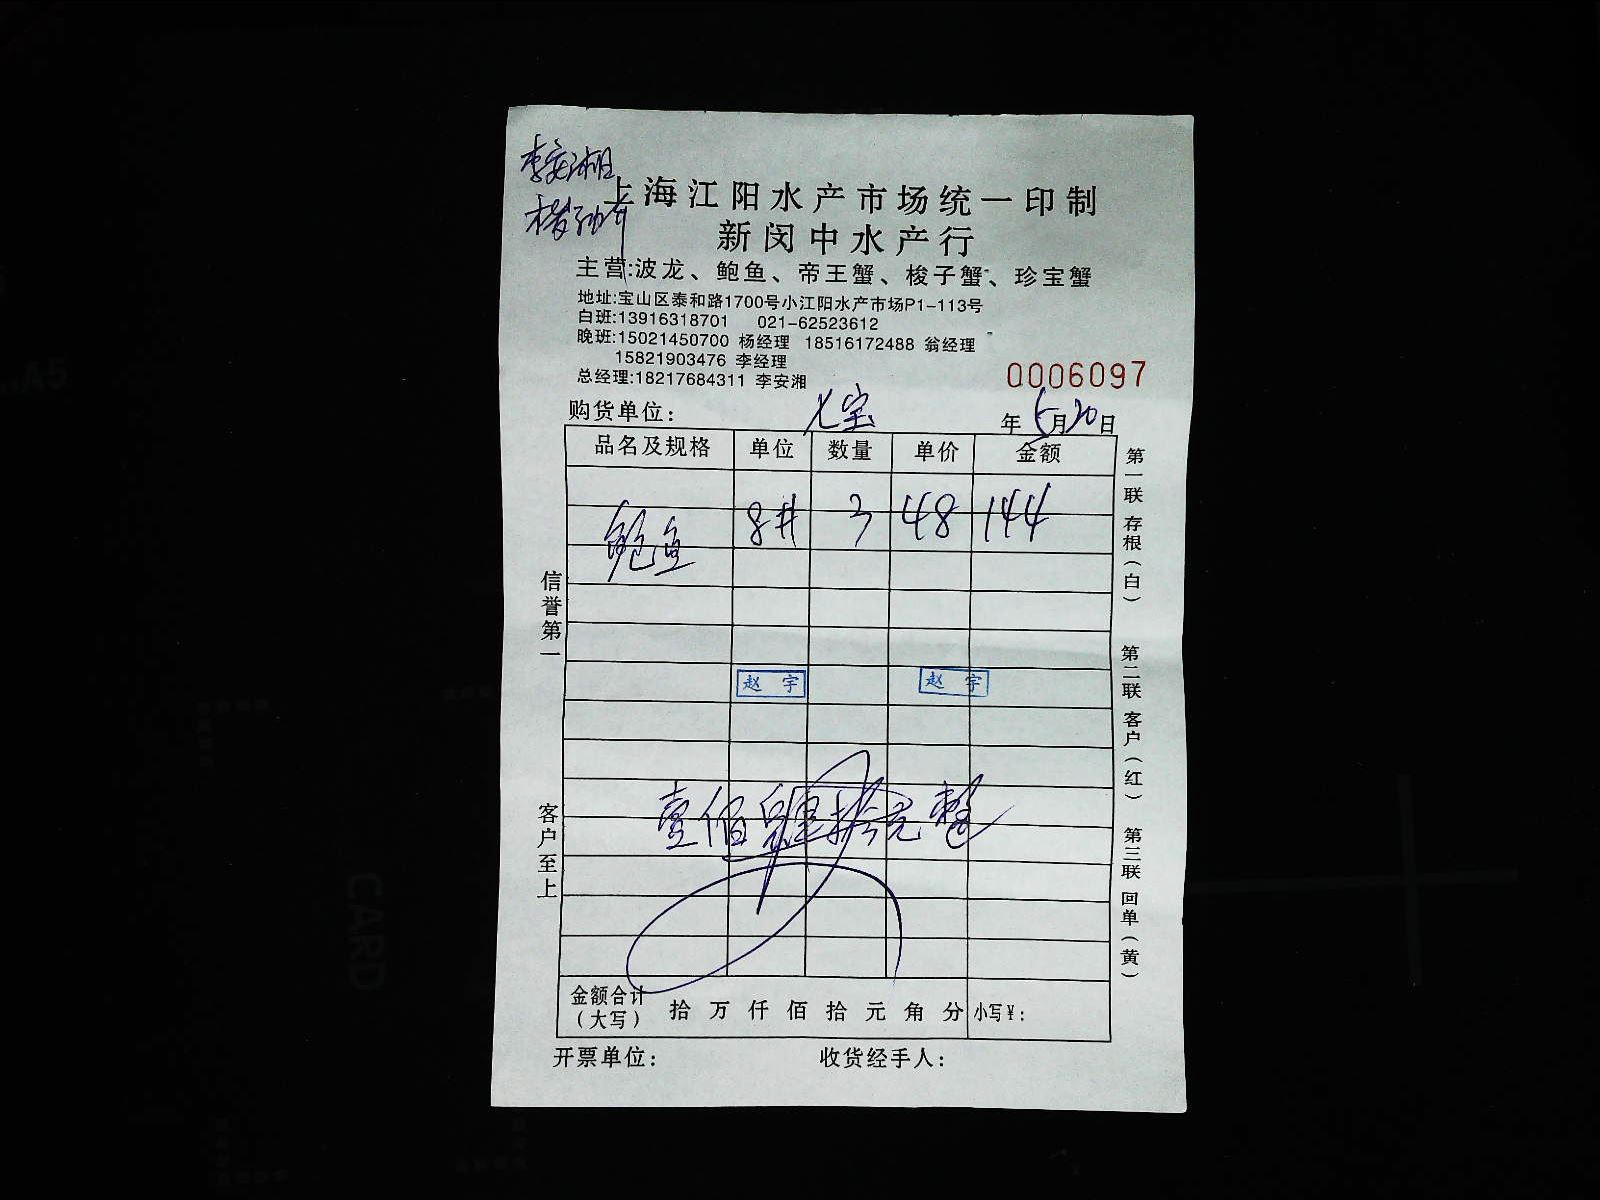 李安湘
上海江阳水产市场统一印制
新闵中水产行
主营:波龙、鲍鱼、帝王蟹、梭子蟹、珍宝蟹
地址:宝山区泰和路1700号小江阳水产市场P1-113号
白班:13916318701 021-62523612
晚班:15021450700 杨经理 18516172488 翁经理
15821903476 李经理
总经理:18217684311 李安湘
0006097
购货单位: 七宝 年 5月20日
品名及规格 单位 数量 单价 金额
鲍鱼 8# 3 48 144
赵宇 赵宇
壹佰 拾 元整
金额合计(大写) 拾 万 仟 佰 拾 元 角 分 小写¥:
开票单位: 收货经手人:
信誉第一
客户至上
第一联 存根(白)
第二联 客户(红)
第三联 回单(黄)
CARD
A5